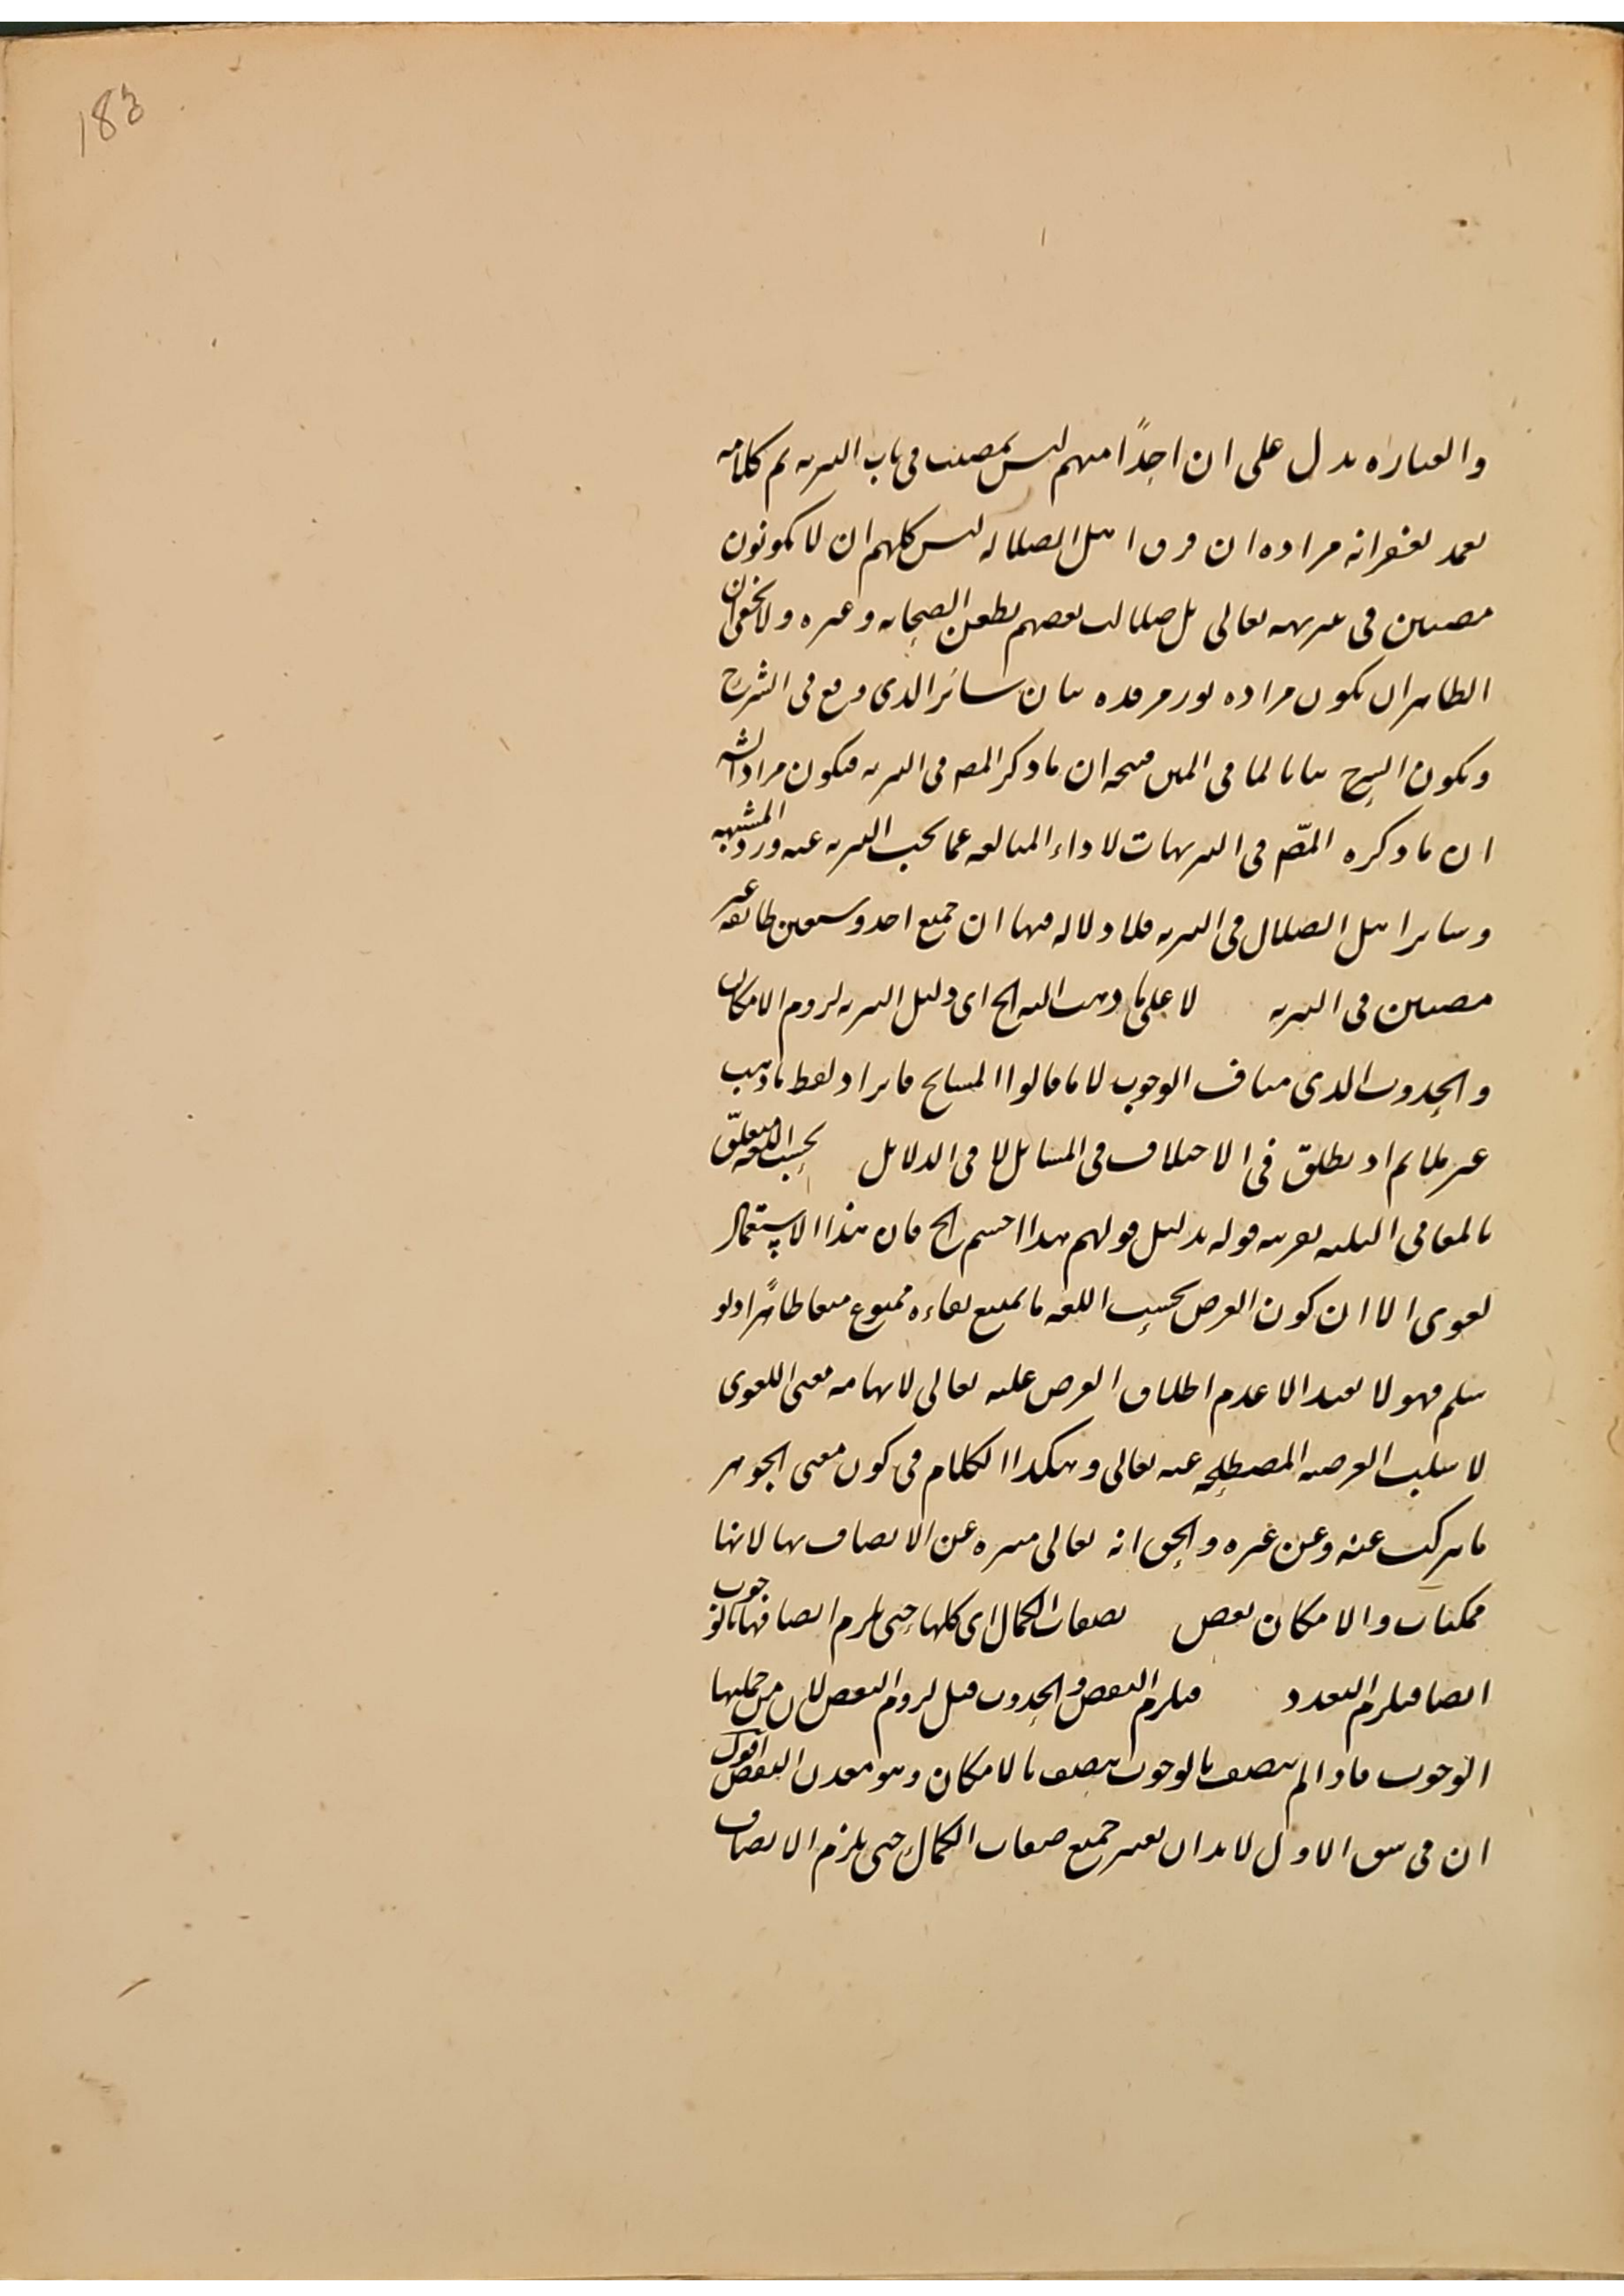 183
والعبارة تدل على ان احدًا منهم ليس بمصيب في باب التنزيه ثم كلامه
تغمد بغفرانه مراده ان فرق اهل الضلالة ليس كلهم ان لا يكونون
مصيبين في تنزيهه تعالى بل ضلالت بعضهم بطعن الصحابه وغيره ولا يخفى ان
الظاهر ان يكون مراده نور مرقده بيان سائر الذي وقع في الشرح
ويكون الشرح بيانا لما في المتن فيتجه ان ما ذكر المصـ في التنزيه فيكون مراد الشـ
ان ما ذكره المصّ في التنزيهات لاداء المبالغه عما يجب التنزيه عنه ورد المشبهه
وساير اهل الضلال في التنزيه فلا دلاله فيها ان جميع احد وسبعين طائفه غير
مصيبين في التنزيه لا على ما ذهب اليه الخ اى دليل التنزيه لزوم الامكان
والحدوث الذى مناف الوجوب لا ما قالوا المشايخ فايراد لفظ ما ذهب
غير ملايم اذ يطلق في الاختلاف في المسايل لا في الدلايل بحسب اللغه متعلّق
بالمعاني الثلثه بقرينه قوله بدليل قولهم هذا احسم الخ فان هذا الاستعمال
لغوى الا ان كون العرض بحسب اللغه ما يمتنع بقاءه ممنوع منعا ظاهرًا ولو
سلم فهو لا يفيد الا عدم اطلاق العرض عليه تعالى لايهامه معنى اللغوى
لا سلب العرضيه المصطلحه عنه تعالى وهكذا الكلام في كون معنى الجوهر
ما يتركب عنه وعن غيره والحق انه تعالى منزه عن الاتصاف بها لانها
ممكنات والامكان نقص بصفات الكمال اى كلها حتى يلزم اتصافها بالوجوب
ايضا فيلزم التعدد فيلزم النقص والحدوث قيل لزوم النقص لان من جملتها
الوجوب فاذا لم يتصف بالوجوب يتصف بالامكان وهو معدن النقص اقول
ان في شق الاول لا بد ان يعتبر جميع صفات الكمال حتى يلزم الاتصاف